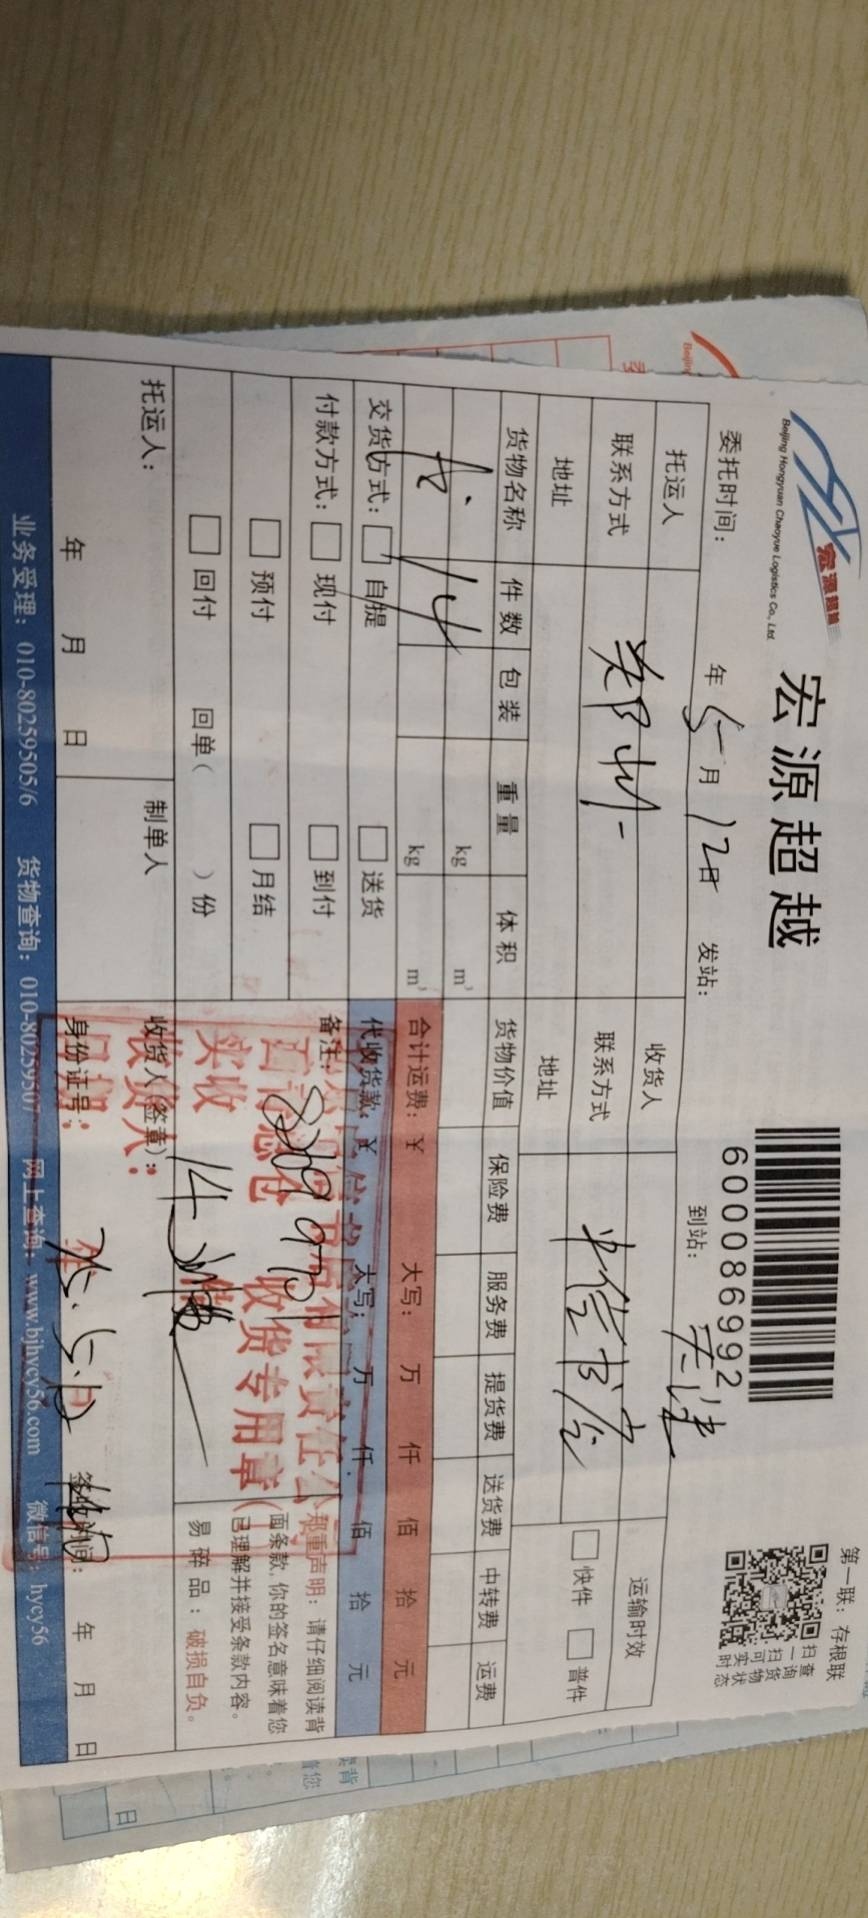 第一联：存根联
宏源超越
宏源超越
Beijing Hongyuan Chaoyue Logistics Co., Ltd.
600086992
扫一扫可实时
查询货物状态
委托时间： 年 5 月 12 日 发站： 到站： 天津
托运人 收货人 运输时效
联系方式 郑州 联系方式 中信书店 快件 普件
地址 地址
货物名称 件数 包装 重量 体积 货物价值 保险费 服务费 提货费 送货费 中转费 运费
kg m³
14 kg m³
合计运费：￥ 大写： 万 仟 佰 拾 元
交货方式： 自提 送货
代收货款：￥ 大写： 万 仟 佰 拾 元
付款方式： 现付 到付
预付 月结
回付 回单（ ）份
备注：
郑重声明：请仔细阅读背
面条款，你的签名意味着您
已理解并接受条款内容。
易碎品：破损自负。
实收 14
收货专用章
收货人：
托运人： 制单人 收货人（签章）：
年 月 日 身份证号： 签收时间： 年 月 日
25.5.13
业务受理：010-80259505/6 货物查询：010-80259507 网上查询：www.bjhycy56.com 微信号：hycy56